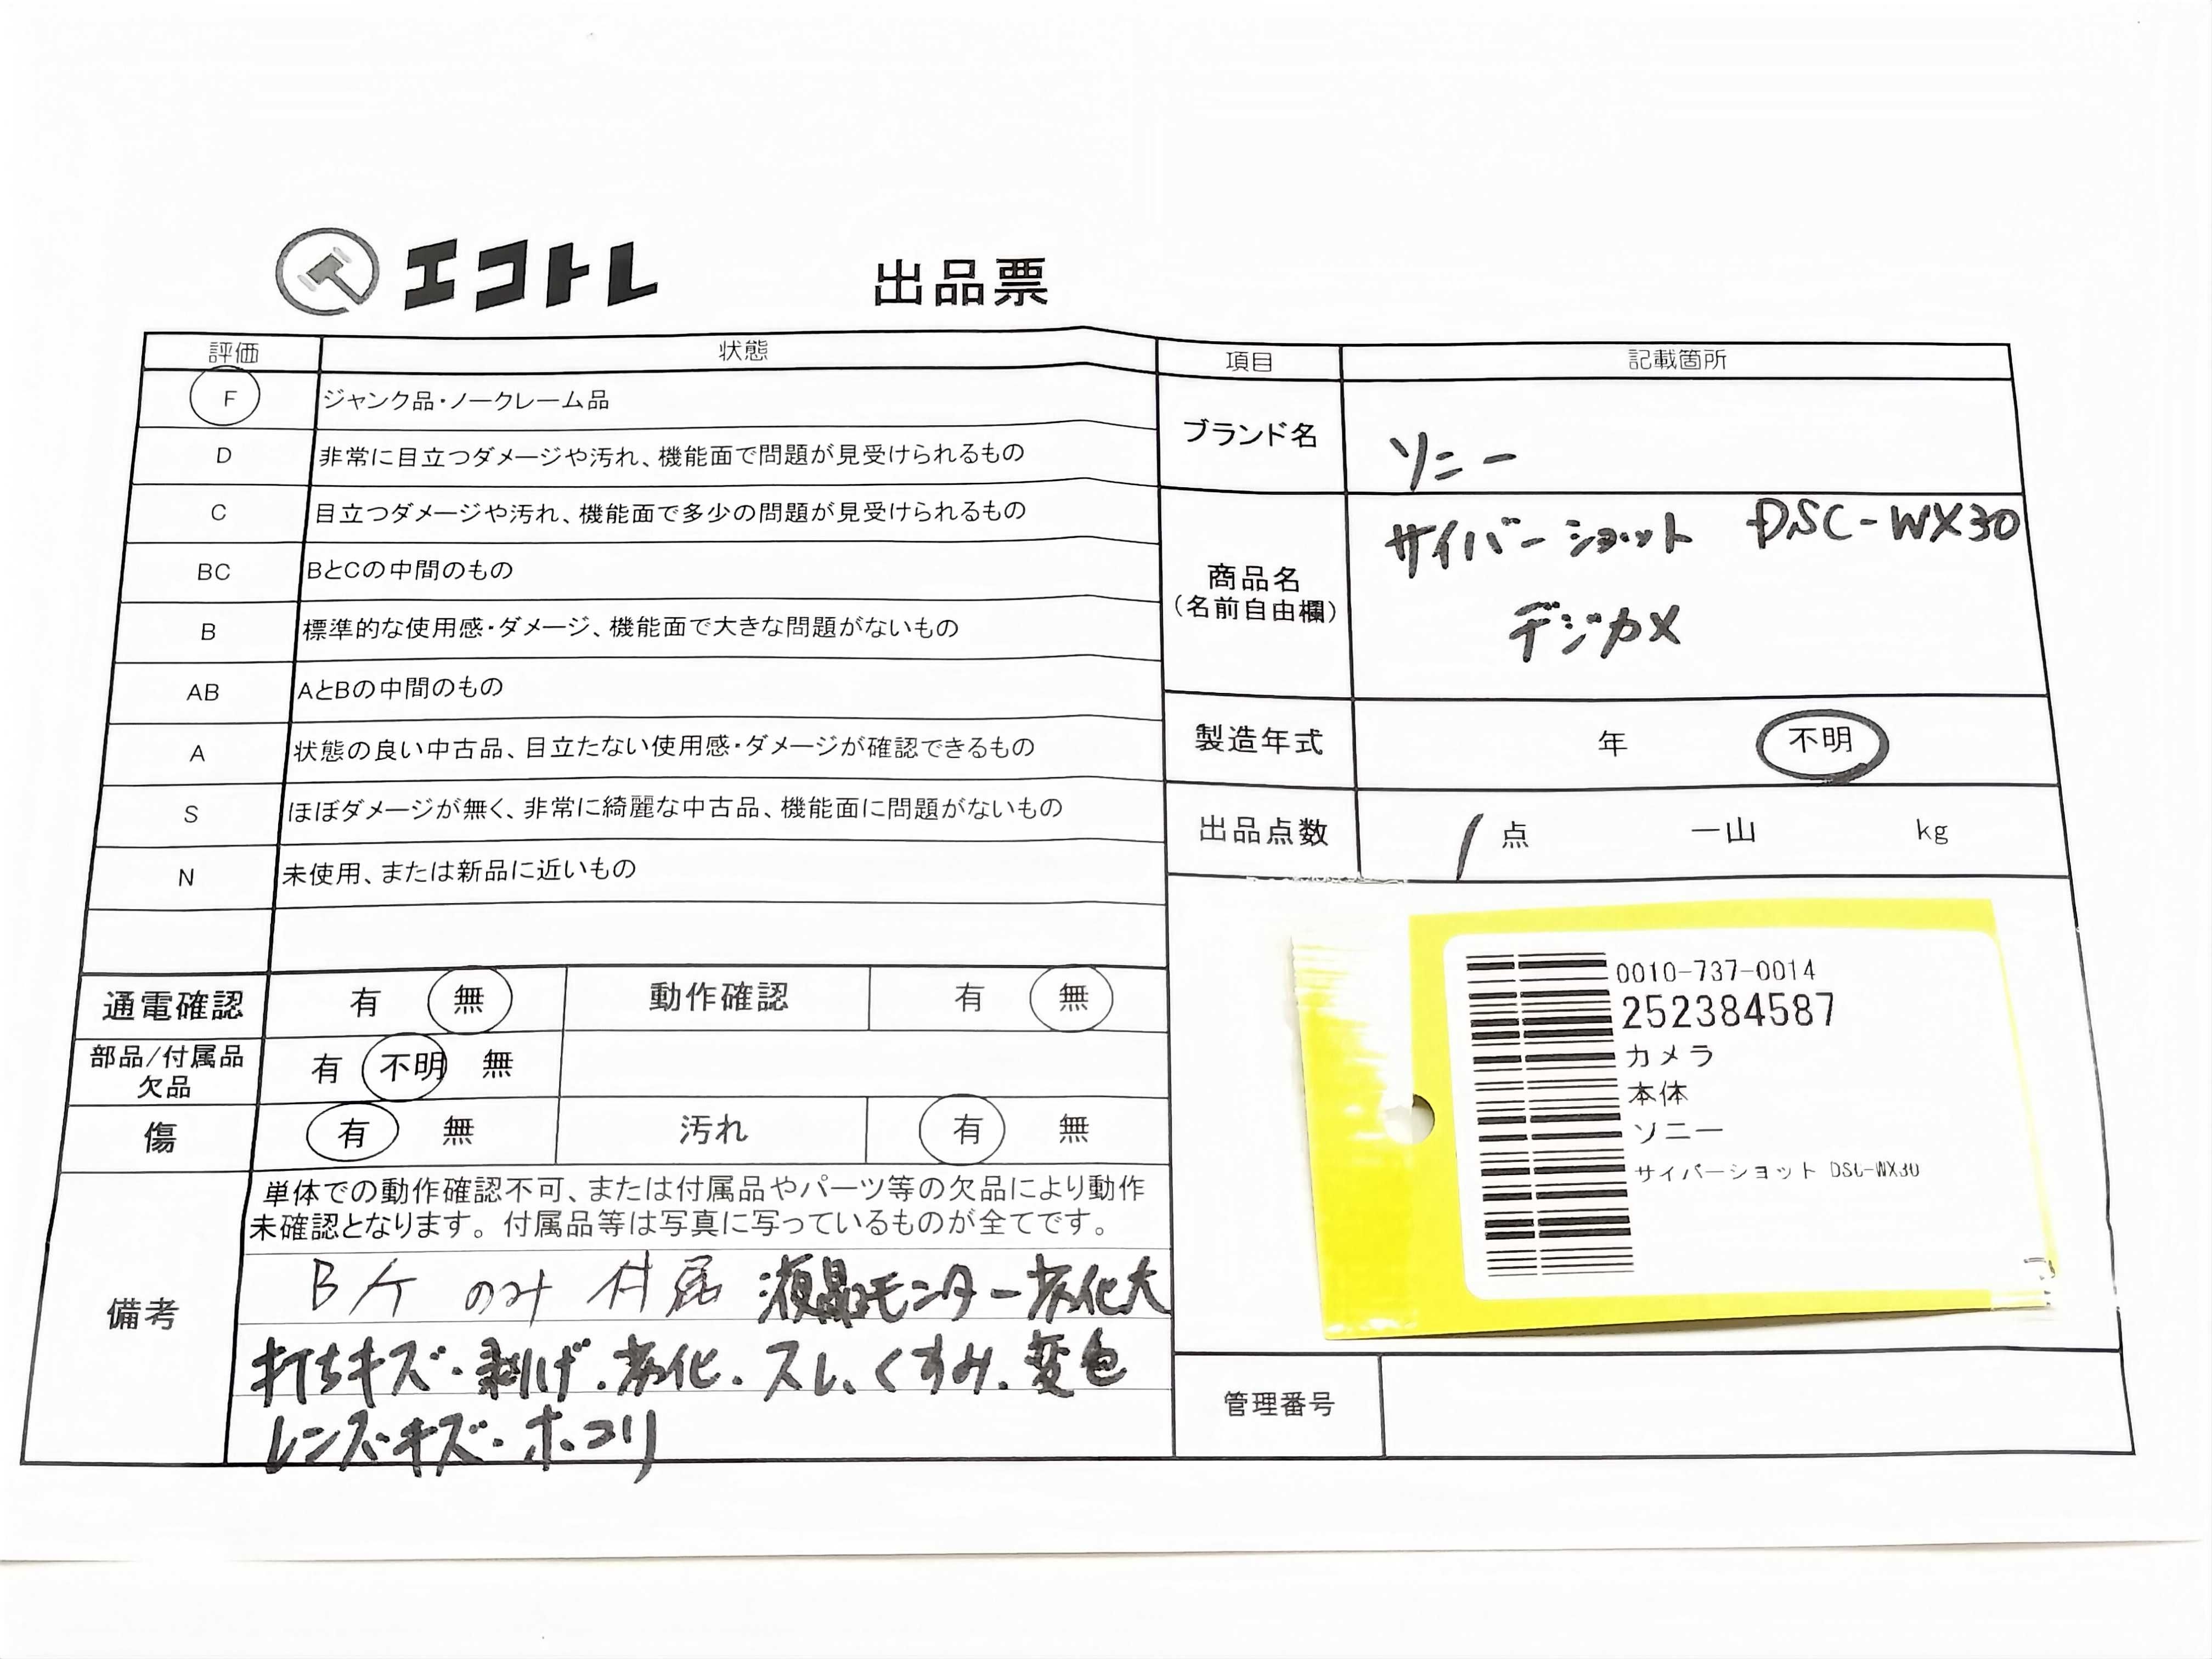 エコトレ 出品票
評価 状態
F ジャンク品・ノークレーム品
D 非常に目立つダメージや汚れ、機能面で問題が見受けられるもの
C 目立つダメージや汚れ、機能面で多少の問題が見受けられるもの
BC BとCの中間のもの
B 標準的な使用感・ダメージ、機能面で大きな問題がないもの
AB AとBの中間のもの
A 状態の良い中古品、目立たない使用感・ダメージが確認できるもの
S ほぼダメージが無く、非常に綺麗な中古品、機能面に問題がないもの
N 未使用、または新品に近いもの
通電確認 有 無 動作確認 有 無
部品/付属品
欠品 有 不明 無
傷 有 無 汚れ 有 無
備考
単体での動作確認不可、または付属品やパーツ等の欠品により動作
未確認となります。付属品等は写真に写っているものが全てです。
Bケ のみ 付属 液晶モニター劣化大
打ちキズ・剥げ・劣化・スレ、くすみ・変色
レンズキズ・ホコリ
項目 記載箇所
ブランド名 ソニー
商品名
(名前自由欄)
サイバーショット DSC-WX30
デジカメ
製造年式 年 不明
出品点数 1 点 一山 kg
0010-737-0014
252384587
カメラ
本体
ソニー
サイバーショット DSC-WX30
管理番号